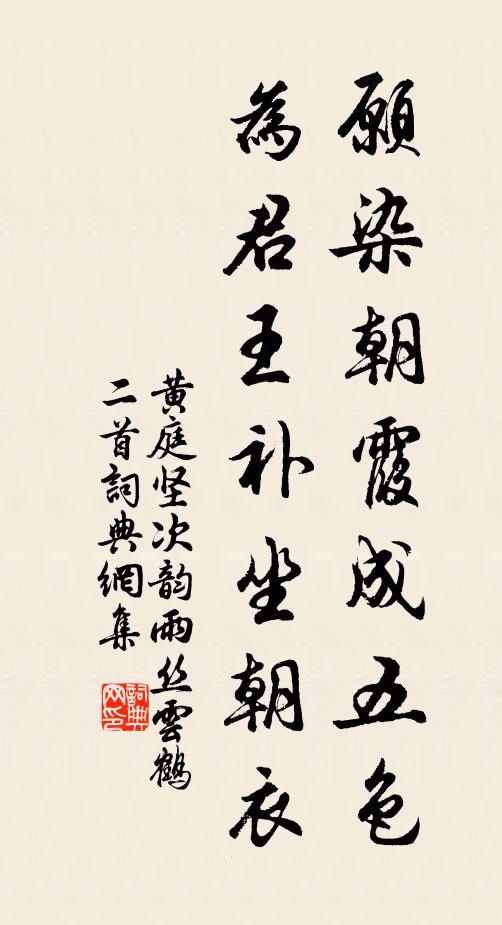 願染朝霞成五色
為君王补坐朝衣
黄庭坚次韵雨丝雲鹤
二首詞典網集
詞典网印